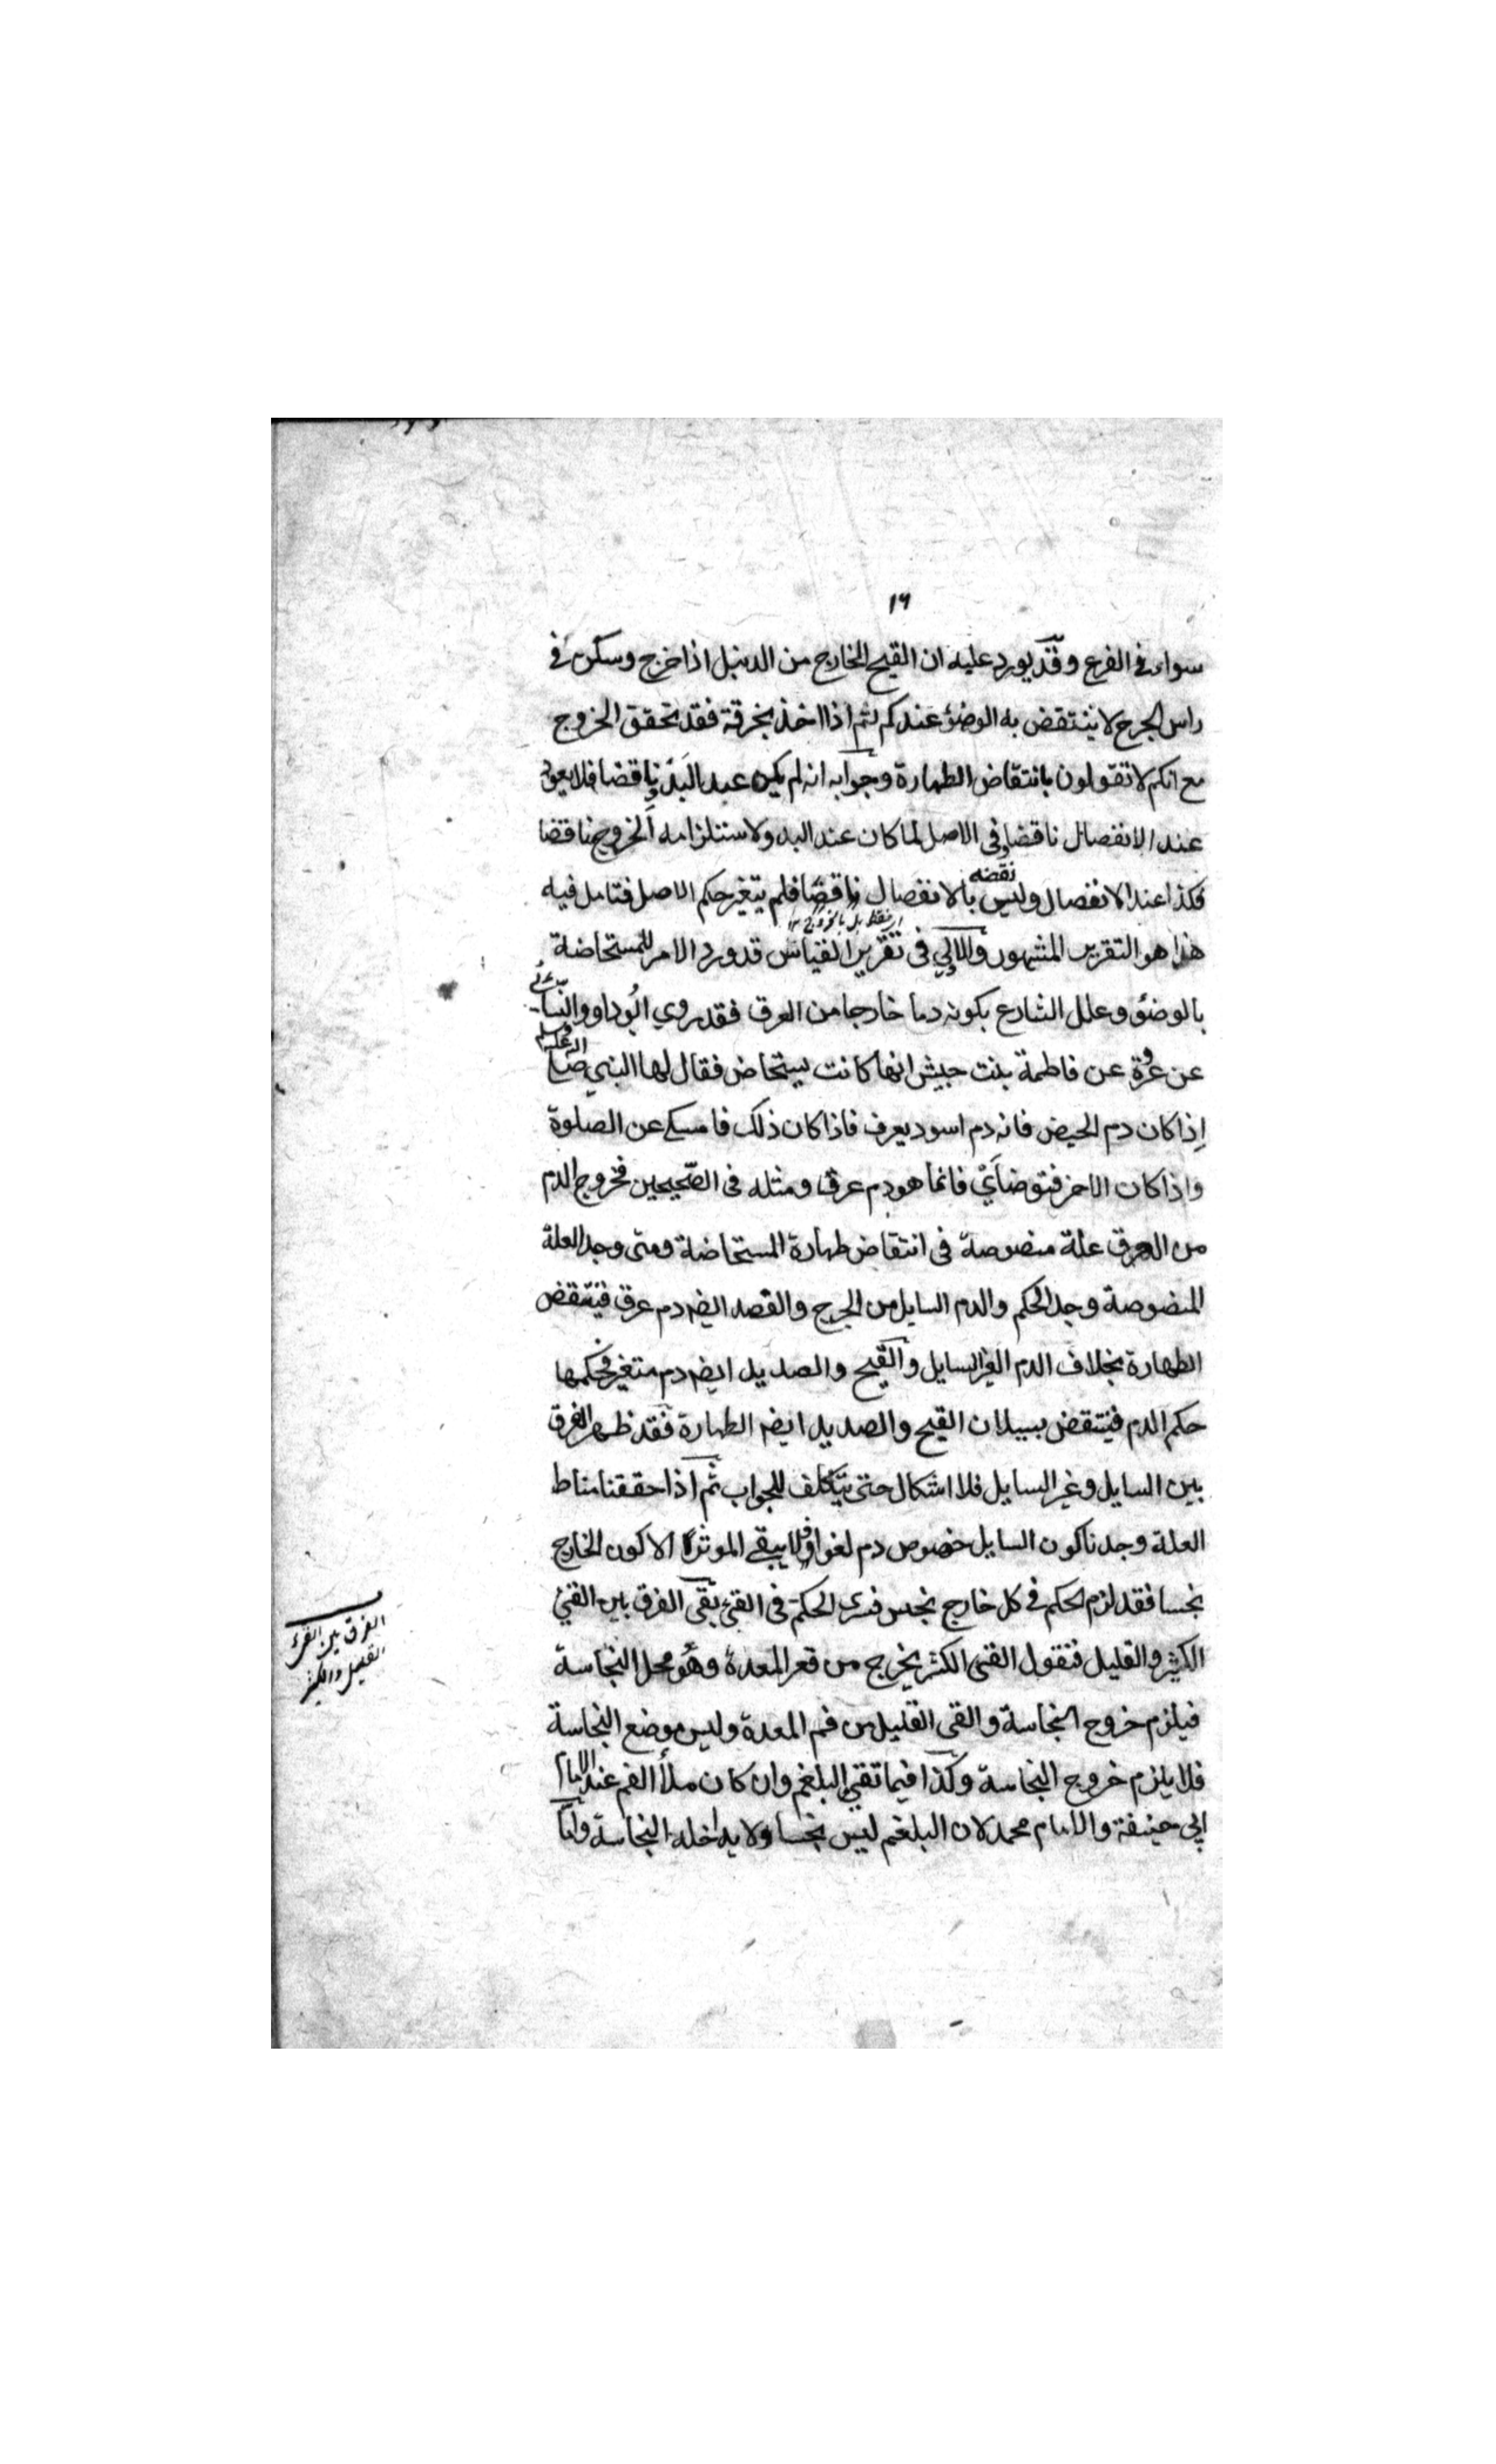 ١٩
سواء في الفرع وقد يورد عليه ان القيح الخارج من الدنبل اذا خرج وسكن في
راس الجرح لا ينتقض به الوضؤ عندكم ثم اذا اخذ بخرقة فقد تحقق الخروج
مع انكم لا تقولون بانتقاض الطهارة وجوابه انه لم يكن عند البدّ ناقضا فلا يعود
عند الانفصال ناقضا وفى الاصل لما كان عند البد ولاستلزامه الخروج ناقضا
فكذا عند الانفصال وليس نقضه بالانفصال ناقضا فلم يتغير حكم الاصل فتامل فيه
فقط بل بالخروج ١٢
هذا هو التقرير المشهور والاولي فى تقرير القياس قد ورد الامر للمستحاضة
بالوضؤ وعلل الشارع بكونه دما خارجا من العرق فقد روي ابوداود والنسائى
عن عروة عن فاطمة بنت حبيش انها كانت يستحاض فقال لها النبي صلى الله عليه وسلم
اِذا كان دم الحيض فانه دم اسود يعرف فاذا كان ذلك فامسكى عن الصلوة
واذا كان الاخر فتوضائي فانما هو دم عرق ومثله فى الصّحيحين فخروج الدم
من العرق علة منصوصة فى انتقاض طهارة المستحاضة ومتى وجد العلة
المنصوصة وجد الحكم والدم السايل من الجرح والفصد ايضه دم عرق فينتقض
الطهارة بخلاف الدم الغير السايل والقيح والصديد ايضه دم متغير فحكمها
حكم الدم فينتقض بسيلان القيح والصديد ايضه الطهارة فقد ظهر الفرق
بين السايل وغير السايل فلا اشكال حتى يتكلف للجواب ثم اذا حققنا مناط
العلة وجدنا كون السايل خصوص دم لغوا فلا يبقے الموثر الا كون الخارج
نجسا فقد لزم الحكم في كل خارج نجس فسرى الحكم فى القئ بقى الفرق بين القئ
الكثير والقليل فنقول القئ الكثير يخرج من قعر المعدة وهو محل النجاسة
فيلزم خروج النجاسة والقى القليل من فم المعدة وليس موضع النجاسة
فلا يلزم خروج النجاسة وكذا فيما تقئ البلغم وان كان ملأ الفم عند الامام
ابى حنيفة والامام محمد لان البلغم ليس نجسا ولا يداخله النجاسة واما
الفرق بين القئ
القليل والكثير